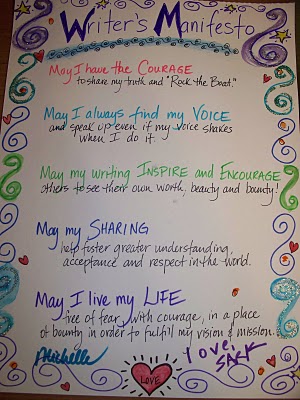 Writer's Manifesto
May I have the COURAGE
to share my truth and "Rock the Boat."
May I always find my VOICE
and speak up even if my voice shakes
when I do it.
May my writing INSPIRE and ENCOURAGE
others to see their own worth, beauty and bounty!
May my SHARING
help foster greater understanding,
acceptance and respect in the world.
May I live my LIFE
free of fear, with courage, in a place
of bounty in order to fulfill my vision & mission.
Michelle
love, SARK
LOVE